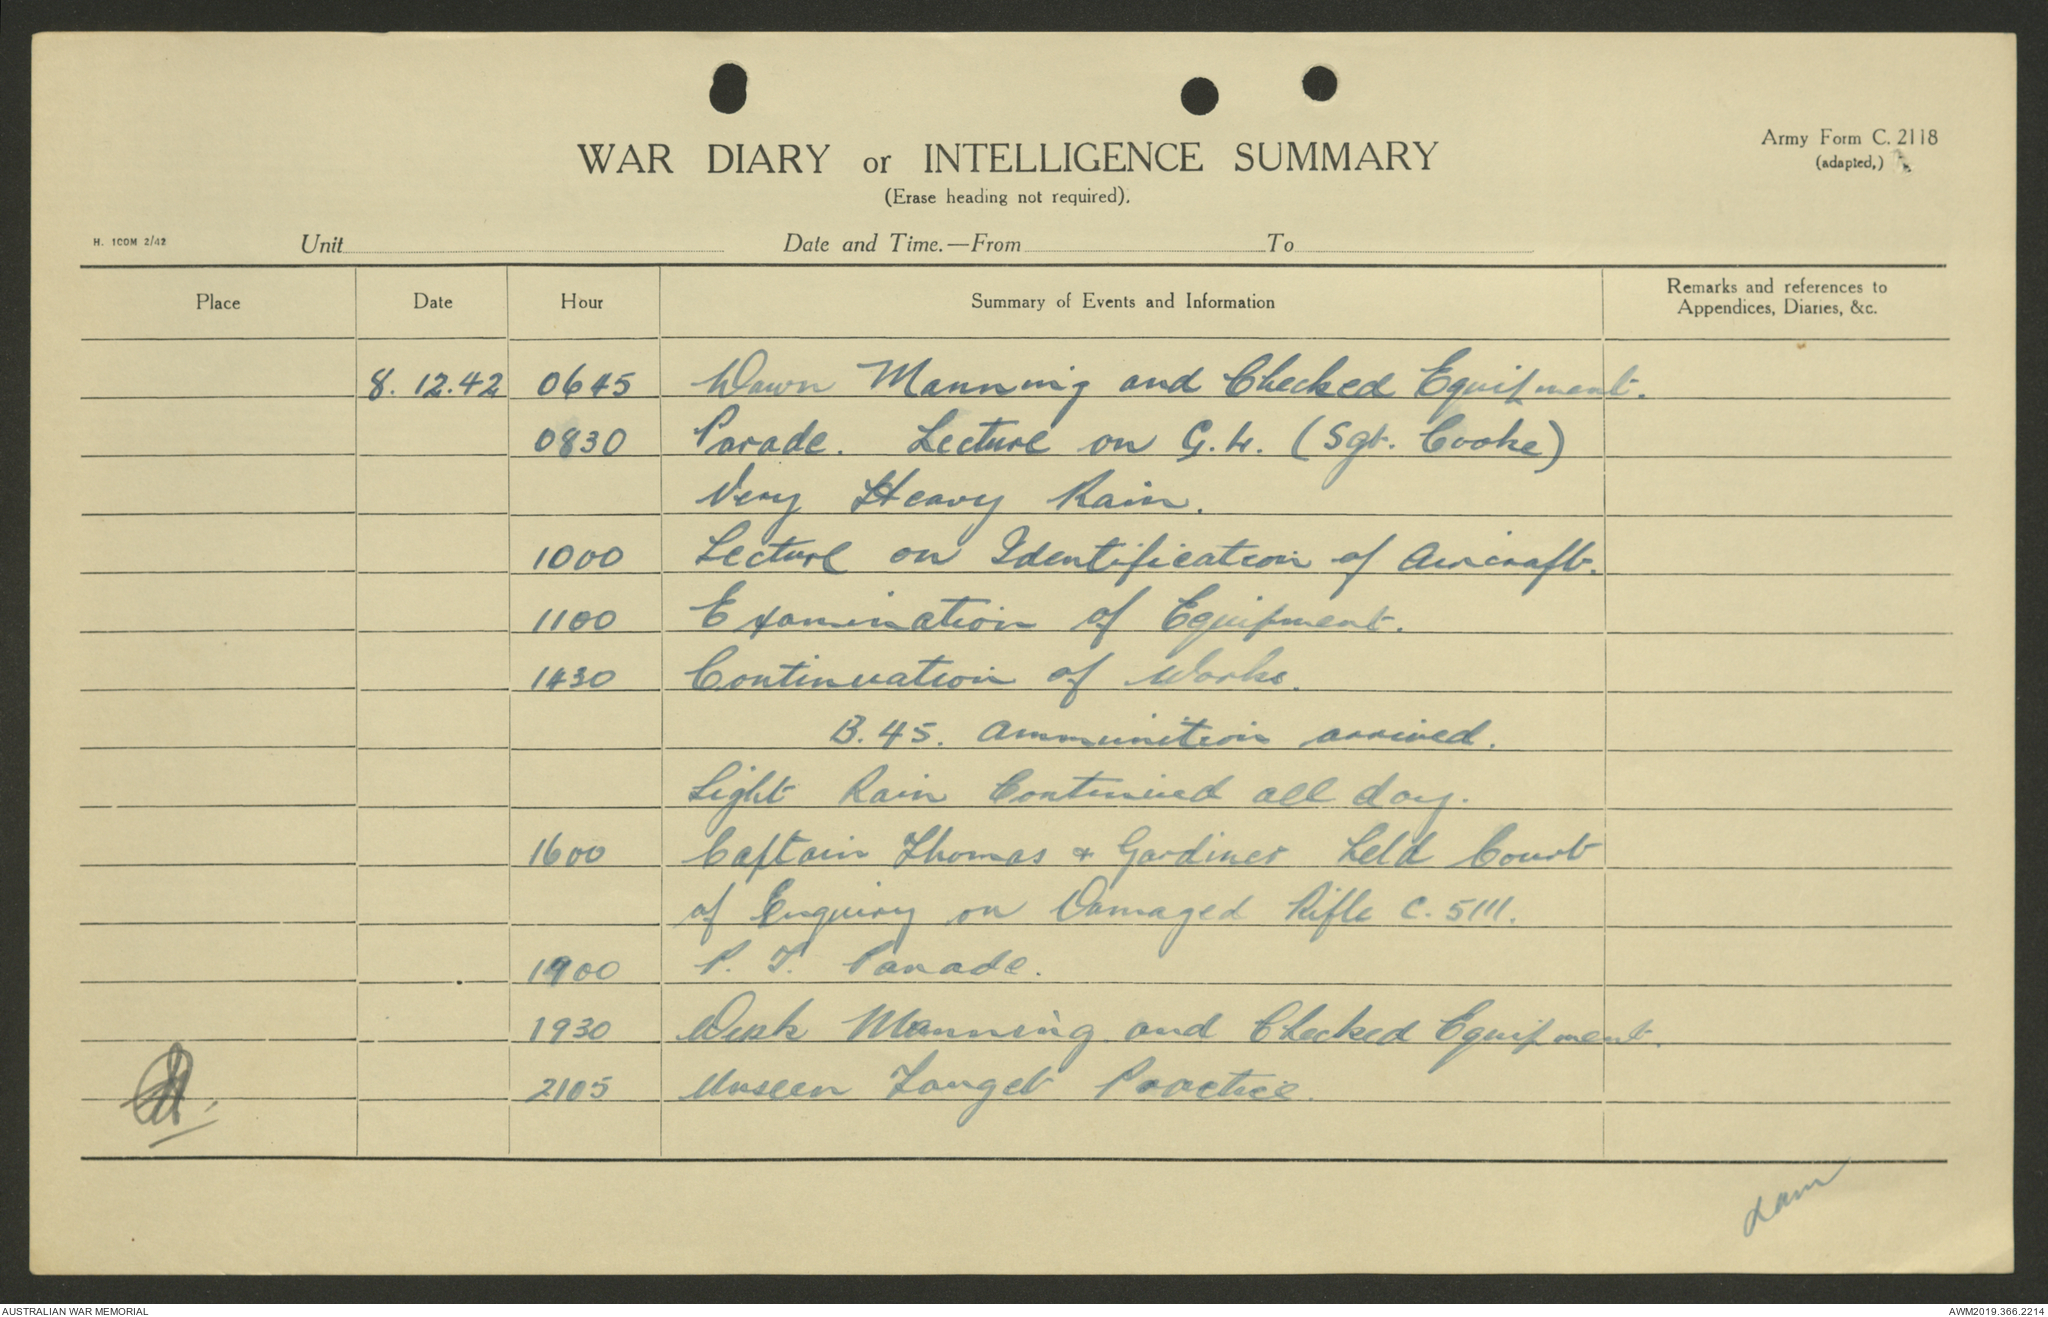 Army Form C. 2118
(adapted,)
WAR DIARY or INTELLIGENCE SUMMARY
(Erase heading not required).
H. 1COM 2/42
Unit
Date and Time.—From
To
Place
Date
Hour
Summary of Events and Information
Remarks and references to
Appendices, Diaries, &c.
8.12.42 0645 Dawn Manning and Checked Equipment.
0830 Parade. Lecture on G.L. (Sgt. Cooke)
Very Heavy Rain.
1000 Lecture on Identification of Aircraft.
1100 Examination of Equipment.
1430 Continuation of Works.
B.45. Ammunition arrived.
Light Rain Continued all day.
1600 Captain Thomas & Gardiner held Court
of Enquiry on Damaged Rifle C. 5111.
1900 P. T. Parade.
1930 Dusk Manning and Checked Equipment.
2105 Unseen Target Practice.
AUSTRALIAN WAR MEMORIAL
AWM2019.366.2214